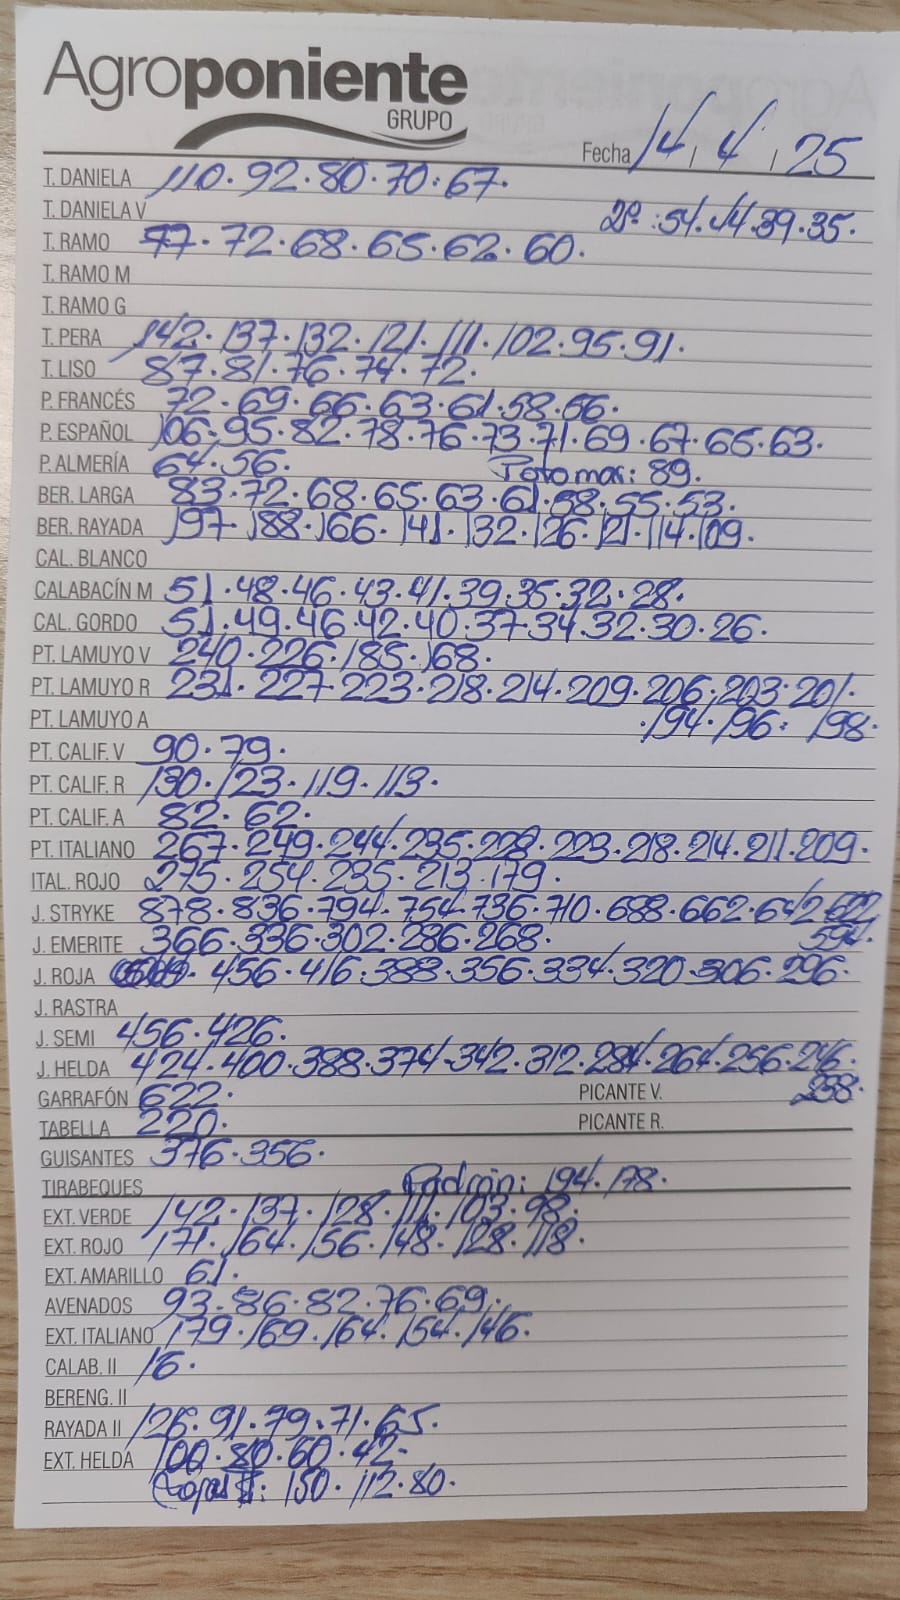 Agroponiente
GRUPO
Fecha 14, 4, 25
T. DANIELA 110. 92. 80. 70. 67.
T. DANELA V 2ª: 54. 44. 39. 35.
T. RAMO 77. 72. 68. 65. 62. 60.
T. RAMO M
T. RAMO G
T. PERA 142. 137. 132. 121. 111. 102. 95. 91.
T. LISO 87. 81. 76. 74. 72.
P. FRANCÉS 72. 69. 66. 63. 61. 58. 56.
P. ESPAÑOL 106. 95. 82. 78. 76. 73. 71. 69. 67. 65. 63.
P. ALMERÍA 64. 56. 89.
BER. LARGA 83. 72. 68. 65. 63. 61. 58. 55. 53.
BER. RAYADA 197. 188. 166. 141. 132. 126. 121. 114. 109.
CAL. BLANCO
CALABACÍN M 51. 48. 46. 43. 41. 39. 35. 32. 28.
CAL. GORDO 51. 49. 46. 42. 40. 37. 34. 32. 30. 26.
PT. LAMUYO V 240. 226. 185. 168.
PT. LAMUYO R 231. 227. 223. 218. 214. 209. 206. 203. 201.
PT. LAMUYO A .194. 196. 198.
PT. CALIF. V 90. 79.
PT. CALIF. R 130. 123. 119. 113.
PT. CALIF. A 82. 62.
PT. ITALIANO 267. 249. 244. 235. 228. 223. 218. 214. 211. 209.
ITAL. ROJO 275. 254. 235. 213. 179.
J. STRYKE 878. 836. 794. 754. 736. 710. 688. 662. 642. 622
J. EMERITE 366. 336. 302. 286. 268. 594.
J. ROJA 456. 416. 388. 356. 334. 320. 306. 296.
J. RASTRA
J. SEMI 456. 426.
J. HELDA 424. 400. 388. 374. 342. 312. 284. 264. 256. 246.
GARRAFÓN 622. PICANTE V. 238.
TABELLA 220. PICANTE R.
GUISANTES 376. 356.
TIRABEQUES Padrón: 194. 178.
EXT. VERDE 142. 137. 128. 111. 103. 98.
EXT. ROJO 171. 164. 156. 148. 128. 118.
EXT. AMARILLO 61.
AVENADOS 93. 86. 82. 76. 69.
EXT. ITALIANO 179. 169. 164. 154. 146.
CALAB. II 16.
BERENG. II
RAYADA II 126. 91. 79. 71. 65.
EXT. HELDA 100. 80. 60. 42.
150. 112. 80.